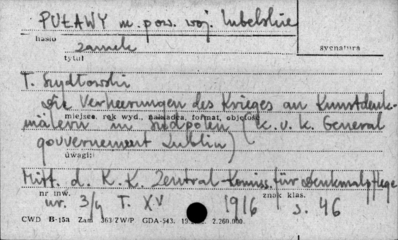 PUŁAWY m. pow. woj. lubelskie
hasło
zamek
sygnatura
tytuł
T. Szydłowski
Die Verheerungen des Krieges an Kunstdenk-
miejsce, rok wyd., nakładca, format, objętość
mälern in Südpolen (K. u. K. General
gouvernement Lublin)
uwagi:
Mitt. d. K. K. Zentral-Komiss. für Denkmalpflege
nr inw. znak klas.
nr. 3/4 T. XV 1916 s. 46
CWD B-15a Zam 363/ZW/P GDA-543. 2.260.000.